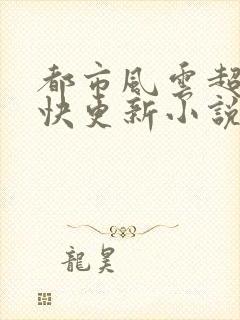 都市風雲超
快更新小說
龍昊